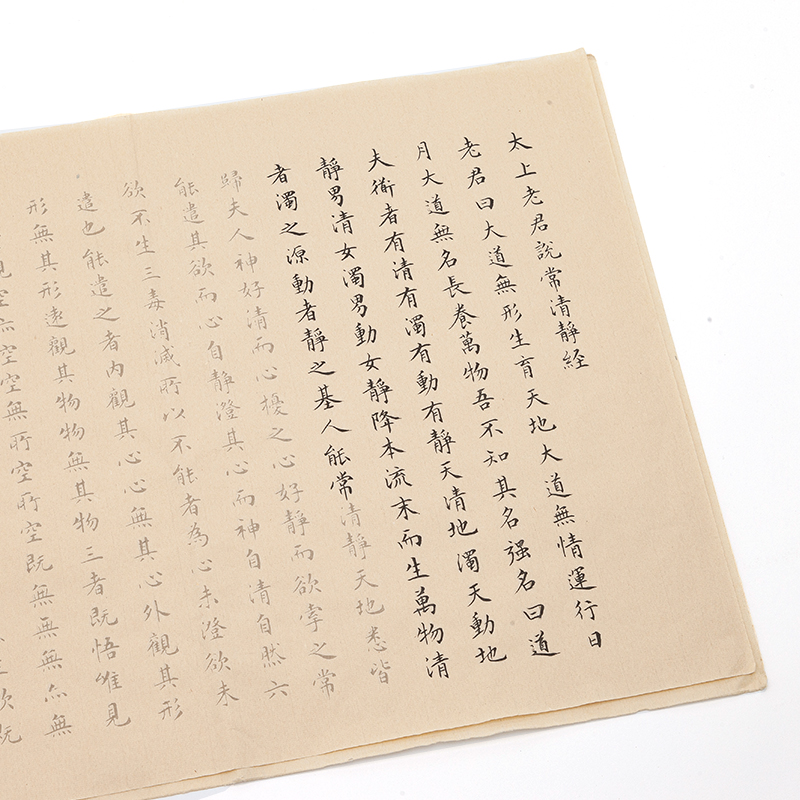 太上老君說常清靜経
老君曰大道無形生育天地大道無情運行日
月大道無名長養萬物吾不知其名强名曰道
夫衜者有清有濁有動有靜天清地濁天動地
靜男清女濁男動女靜降本流末而生萬物清
者濁之源動者靜之基人能常清靜天地悉皆
歸夫人神好清而心擾之心好靜而欲牽之常
能遣其欲而心自靜澄其心而神自清自然六
欲不生三毒消滅所以不能者為心未澄欲未
遣也能遣之者内觀其心心無其心外觀其形
形無其形遠觀其物物無其物三者既悟唯見
空亦空空無所空所空既無無無亦無
欲既